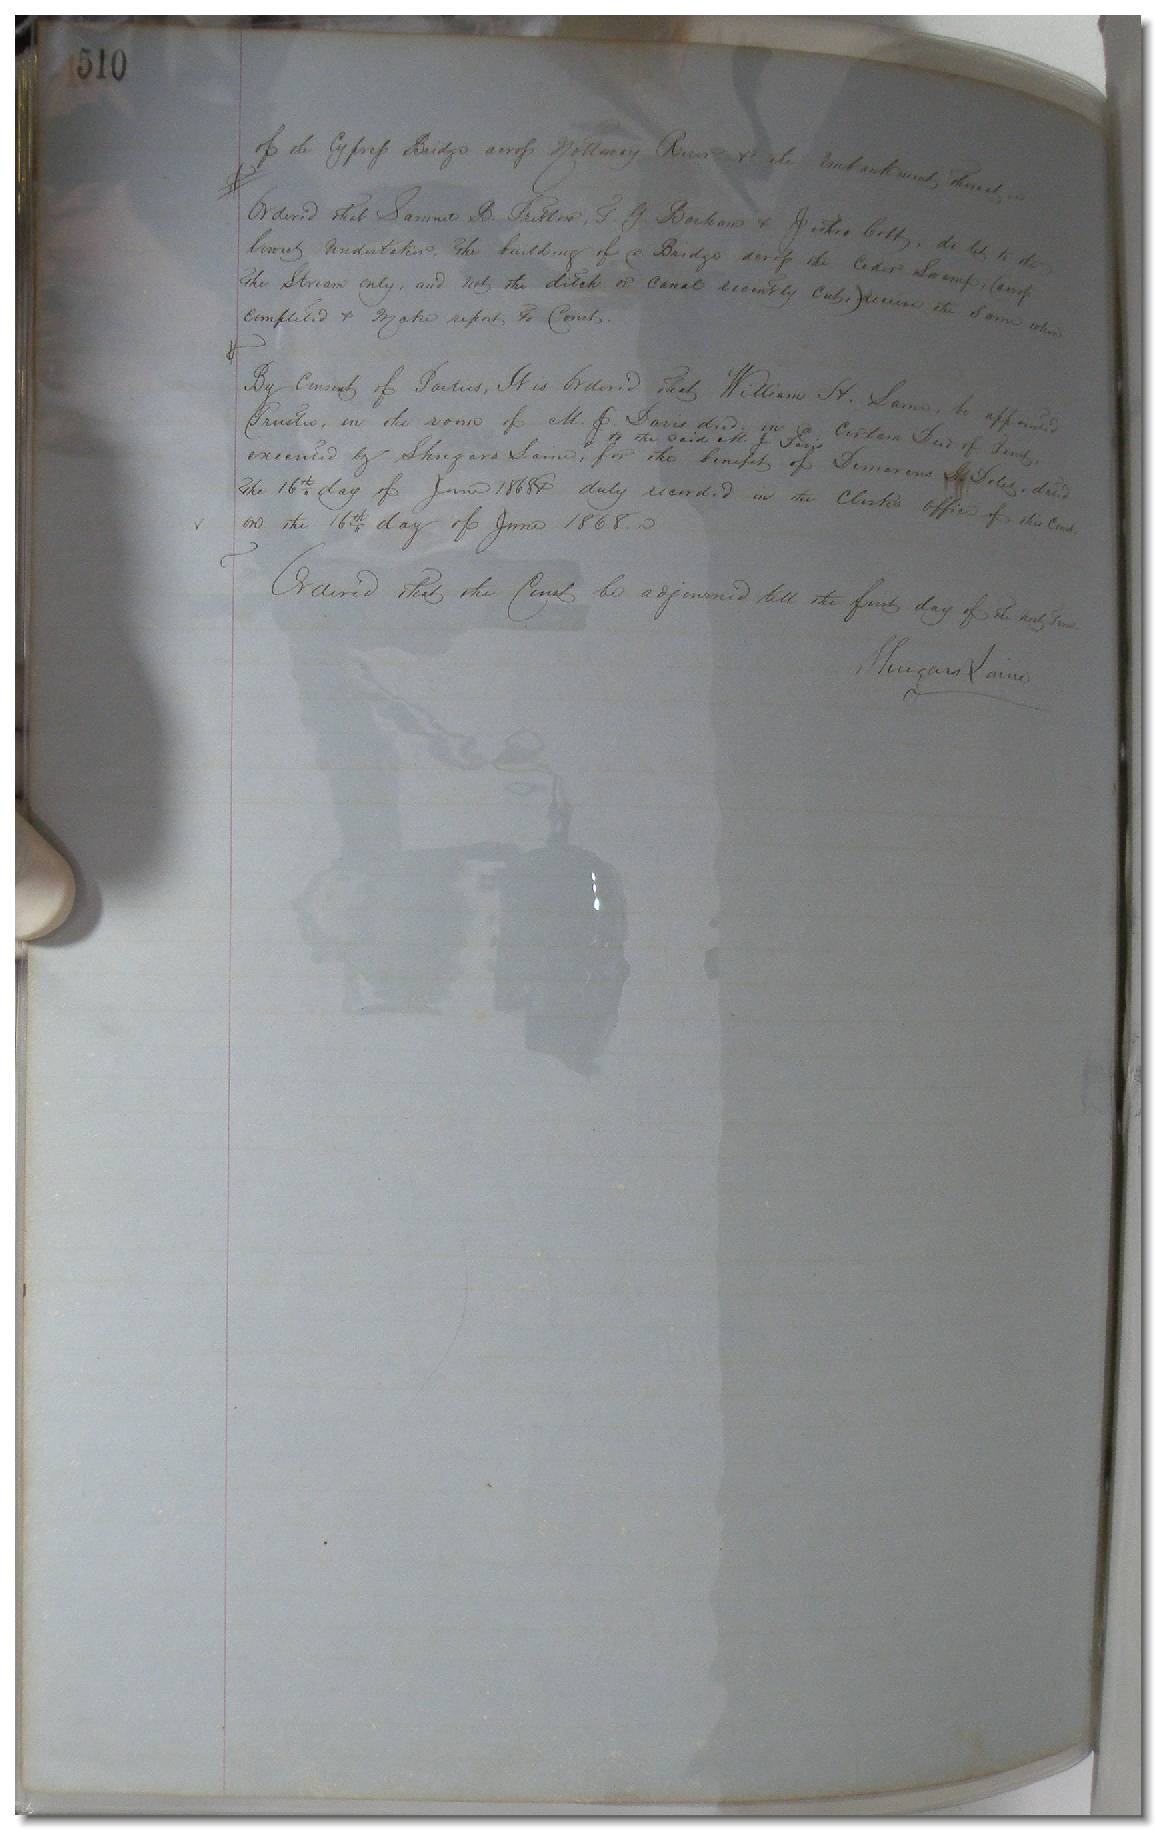 510
of the Cypress Bridge across Nottoway River & the Embankment thereto
Ordered that Samuel B. Pretlow, T. G. Barham & Jethro Cobb, do let to the
lowest undertaker, the building of a Bridge across the Cedar Swamp, (across
the Stream only, and not the ditch or canal recently cut,) receive the Same when
completed & Make report to Court.
By Consent of Parties, It is Ordered that William H. Laine, be appointed
Trustee, in the room of M. J. Davis decd. in a Certain Deed of Trust,
to the said M. J. Davis
executed by Shugars Laine, for the benefit of Demarens dated
the 16th day of June 1868 & duly recorded in the Clerks office of this Court
on the 16th day of June 1868.
Ordered that the Court be adjourned till the first day of the next Term.
Shugars Laine